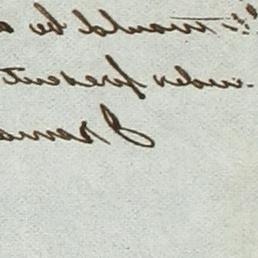 would be a
under present
I rema